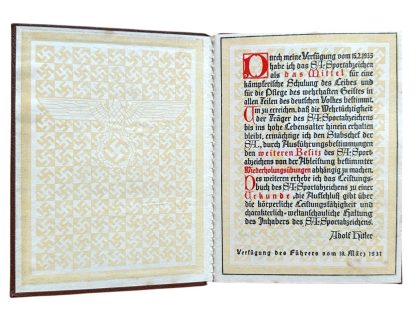 Durch meine Verfügung vom 15.2.1935
habe ich das SA-Sportabzeichen
als das Mittel für eine
kämpferische Schulung des Leibes und
für die Pflege des wehrhaften Geistes in
allen Teilen des deutschen Volkes bestimmt.
Um zu erreichen, daß die Wehrtüchtigkeit
der Träger des SA-Sportabzeichens
bis ins hohe Lebensalter hinein erhalten
bleibt, ermächtige ich den Stabschef der
SA, durch Ausführungsbestimmungen
den weiteren Besitz des SA-Sport-
abzeichens von der Ableistung bestimmter
Wiederholungsübungen abhängig zu machen.
Des weiteren erhebe ich das Leistungs-
buch des SA-Sportabzeichens zu einer
Urkunde, die Aufschluß gibt über
die körperliche Leistungsfähigkeit und
charakterlich-weltanschauliche Haltung
des Inhabers des SA-Sportabzeichens.
Adolf Hitler
Verfügung des Führers vom 18. März 1937